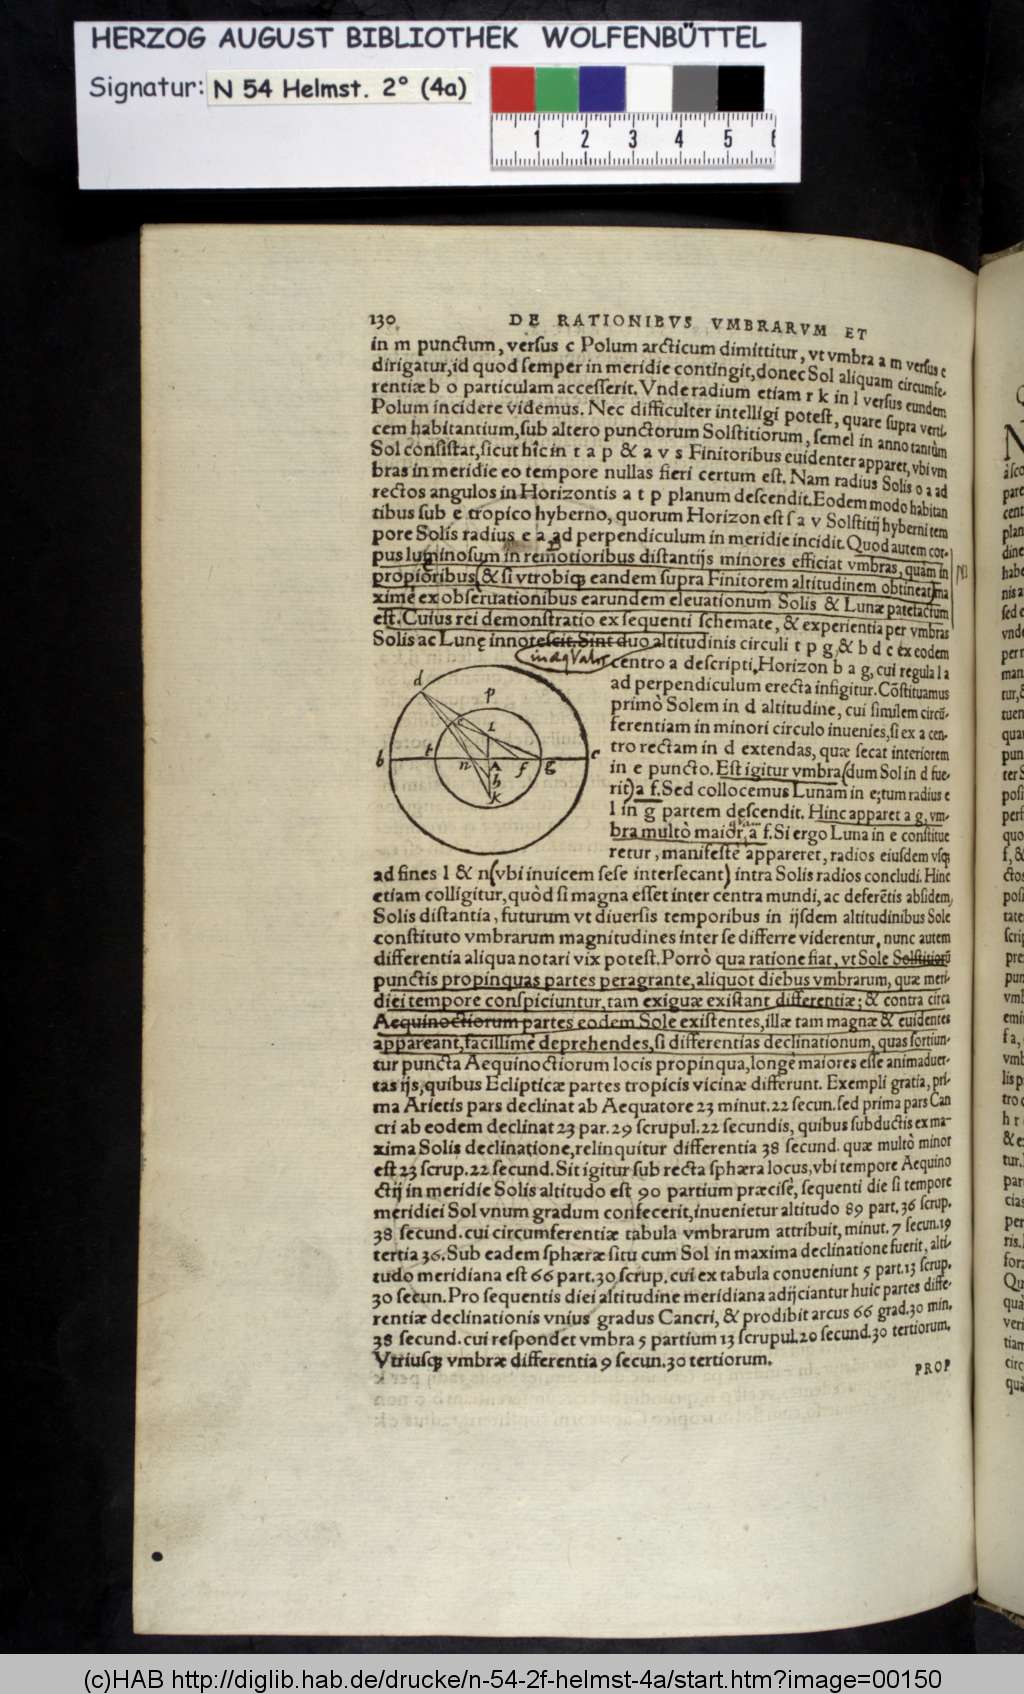 HERZOG AUGUST BIBLIOTHEK WOLFENBÜTTEL
Signatur: N 54 Helmst. 2° (4a)
1 2 3 4 5 6
130 DE RATIONIBVS VMBRARVM ET
in m punctum, versus c Polum arcticum dimittitur, vt vmbra a m versus c
dirigatur, id quod semper in meridie contingit, donec Sol aliquam circumfe-
rentiæ b o particulam accesserit. Vnde radium etiam r k in l versus eundem
Polum incidere videmus. Nec difficulter intelligi potest, quare supra verti-
cem habitantium, sub altero punctorum Solstitiorum, semel in anno tantùm
Sol consistat, sicut hîc in t a p & a v s Finitoribus euidenter apparet, vbi vm
bras in meridie eo tempore nullas fieri certum est. Nam radius Solis o a ad
rectos angulos in Horizontis a t p planum descendit. Eodem modo habitan
tibus sub e tropico hyberno, quorum Horizon est s a v Solstitij hyberni tem
pore Solis radius e a ad perpendiculum in meridie incidit. Quod autem cor-
pus luminosum in remotioribus distantijs minores efficiat vmbras, quàm in
propioribus, & si vtrobiq; eandem supra Finitorem altitudinem obtineat, ma
ximè ex obseruationibus earundem eleuationum Solis & Lunæ patefactum
est. Cuius rei demonstratio ex sequenti schemate, & experientia per vmbras
Solis ac Lunę innotescit. Sint duo altitudinis circuli t p g, & b d c ex eodem
centro a descripti, Horizon b a g, cui regula l a
ad perpendiculum erecta infigitur. Cōstituamus
primò Solem in d altitudine, cui similem circū-
ferentiam in minori circulo inuenies, si ex a cen-
tro rectam in d extendas, quæ secat interiorem
in e puncto. Est igitur vmbra (dum Sol in d fue-
rit) a f. Sed collocemus Lunam in e; tum radius e
l in g partem descendit. Hinc apparet a g, vm-
bra multò maior, a f. Si ergo Luna in e constitue
retur, manifestè appareret, radios eiusdem vsq;
d
p
e
l
b
t
n
A
f
g
c
h
k
ad fines l & n (vbi inuicem sese intersecant) intra Solis radios concludi. Hinc
etiam colligitur, quòd si magna esset inter centra mundi, ac deferētis absidem,
Solis distantia, futurum vt diuersis temporibus in ijsdem altitudinibus Sole
constituto vmbrarum magnitudines inter se differre viderentur, nunc autem
differentia aliqua notari vix potest. Porrò qua ratione fiat, vt Sole Solstitiorū
punctis propinquas partes peragrante, aliquot diebus vmbrarum, quæ meri-
diei tempore conspiciuntur, tam exiguæ existant differentiæ; & contra circa
Aequinoctiorum partes eodem Sole existentes, illæ tam magnæ & euidentes
appareant, facillimè deprehendes, si differentias declinationum, quas sortiun-
tur puncta Aequinoctiorum locis propinqua, longè maiores esse animaduer-
tas ijs, quibus Eclipticæ partes tropicis vicinæ differunt. Exempli gratia, pri-
ma Arietis pars declinat ab Aequatore 23 minut. 22 secun. sed prima pars Can
cri ab eodem declinat 23 par. 29 scrupul. 22 secundis, quibus subductis ex ma-
xima Solis declinatione, relinquitur differentia 38 secund. quæ multò minor
est 23 scrup. 22 secund. Sit igitur sub recta sphæra locus, vbi tempore Aequino
ctij in meridie Solis altitudo est 90 partium præcisè, sequenti die si tempore
meridiei Sol vnum gradum confecerit, inuenietur altitudo 89 part. 36 scrup.
38 secund. cui circumferentiæ tabula vmbrarum attribuit, minut. 7 secun. 19
tertia 36. Sub eadem sphæræ situ cum Sol in maxima declinatione fuerit, alti-
tudo meridiana est 66 part. 30 scrup. cui ex tabula conueniunt 5 part. 13 scrup.
30 secun. Pro sequentis diei altitudine meridiana adijciantur huic partes diffe-
rentiæ declinationis vnius gradus Cancri, & prodibit arcus 66 grad. 30 min.
38 secund. cui respondet vmbra 5 partium 13 scrupul. 20 secund. 30 tertiorum.
Vtriusq; vmbræ differentia 9 secun. 30 tertiorum.
PROP
(c)HAB http://diglib.hab.de/drucke/n-54-2f-helmst-4a/start.htm?image=00150